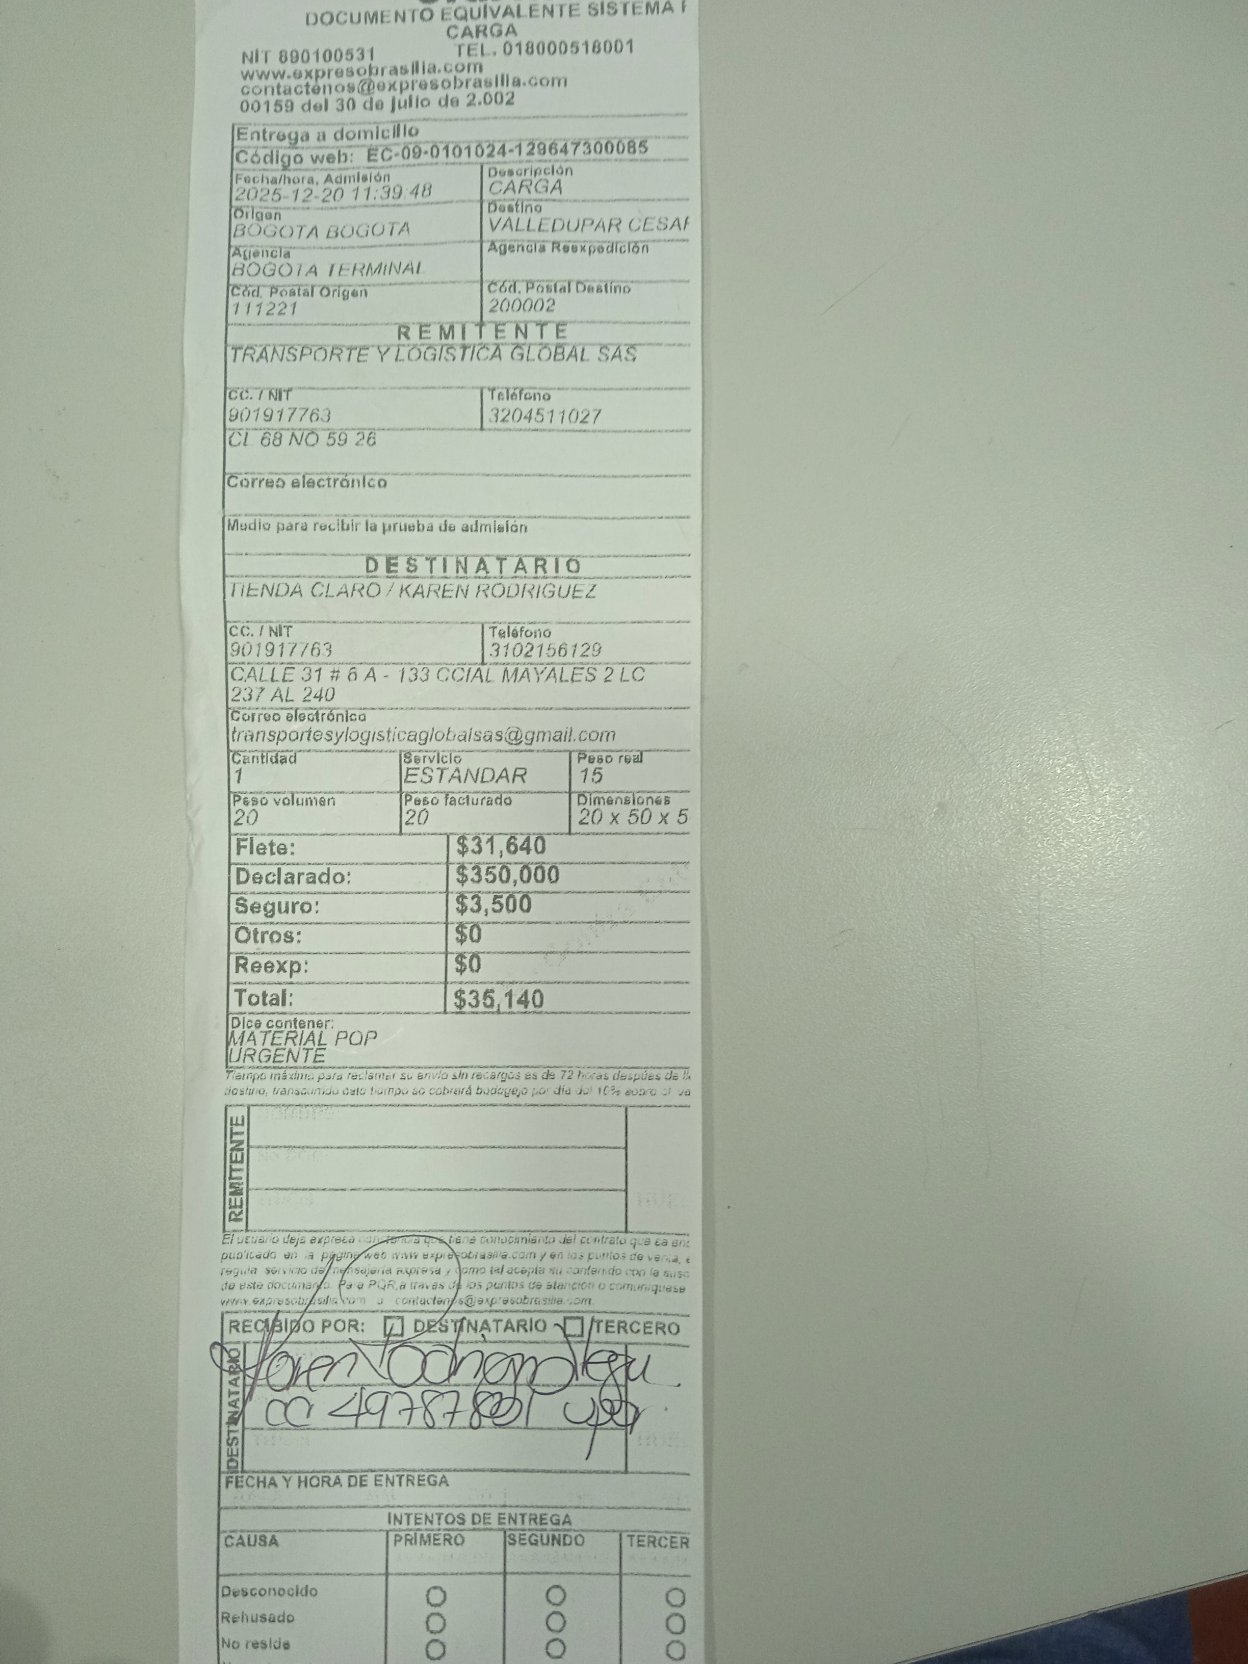 DOCUMENTO EQUIVALENTE SISTEMA
CARGA
NIT 890100531 TEL. 018000518001
www.expresobrasilia.com
contactenos@expresobrasilia.com
00159 del 30 de julio de 2.002
Entrega a domicilio
Código web: EC-09-0101024-129647300085
Fecha/hora, Admisión Descripción
2025-12-20 11:39:48 CARGA
Origen Destino
BOGOTA BOGOTA VALLEDUPAR CESAR
Agencia Agencia Reexpedición
BOGOTA TERMINAL
Cód. Postal Origen Cód. Postal Destino
111221 200002
REMITENTE
TRANSPORTE Y LOGISTICA GLOBAL SAS
CC. / NIT Teléfono
901917763 3204511027
CL 68 NO 59 26
Correo electrónico
Medio para recibir la prueba de admisión
DESTINATARIO
TIENDA CLARO / KAREN RODRIGUEZ
CC. / NIT Teléfono
901917763 3102156129
CALLE 31 # 6 A - 133 CCIAL MAYALES 2 LC
237 AL 240
Correo electrónico
transportesylogisticaglobalsas@gmail.com
Cantidad Servicio Peso real
1 ESTANDAR 15
Peso volumen Peso facturado Dimensiones
20 20 20 x 50 x 5
Flete: $31,640
Declarado: $350,000
Seguro: $3,500
Otros: $0
Reexp: $0
Total: $35,140
Dice contener:
MATERIAL POP
URGENTE
Tiempo máximo para reclamar su envío sin recargos es de 72 horas después de
destino, transcurrido este tiempo se cobrará bodegaje por día del 10% sobre el
REMITENTE
El usuario deja expresa constancia que tiene conocimiento del contrato que se
publicado en la página web www.expresobrasilia.com y en los puntos de venta,
regula servicio de mensajería expresa y como tal acepta su contenido con la
de este documento. Para PQR, a través de los puntos de atención o comuníquese
www.expresobrasilia.com o contactenos@expresobrasilia.com
RECIBIDO POR: DESTINATARIO TERCERO
DESTINATARIO
Karen
cc 49787801 upar
FECHA Y HORA DE ENTREGA
INTENTOS DE ENTREGA
CAUSA PRIMERO SEGUNDO TERCER
Desconocido
Rehusado
No reside